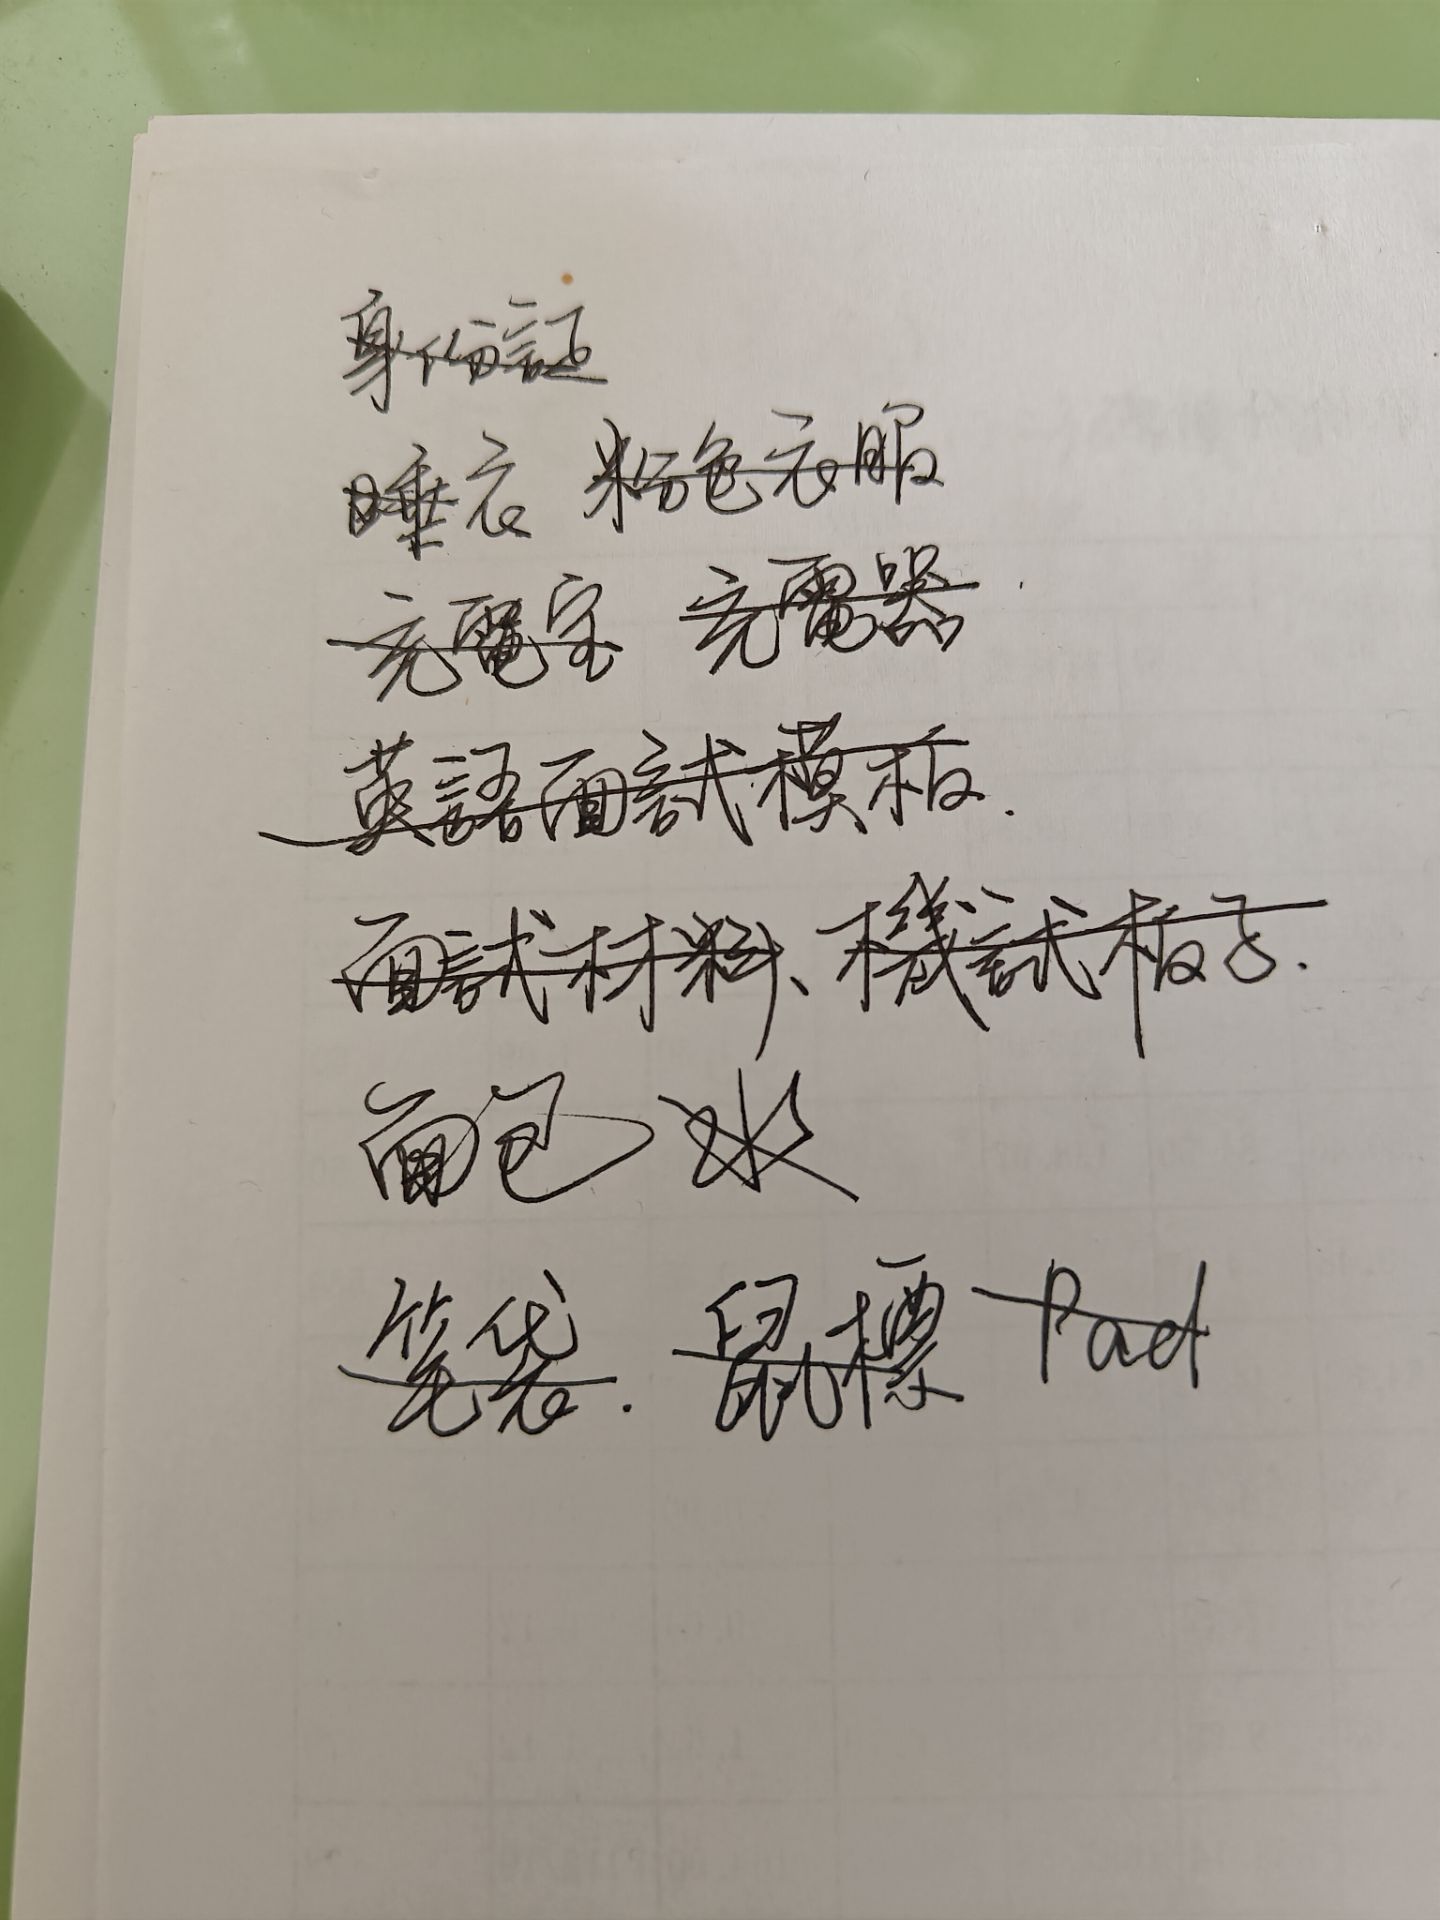 身份証
睡衣 粉色衣服
充電宝 充電器
英語面試模板.
面試材料、機試板子.
面包 水
笔袋. 鼠標 Pad